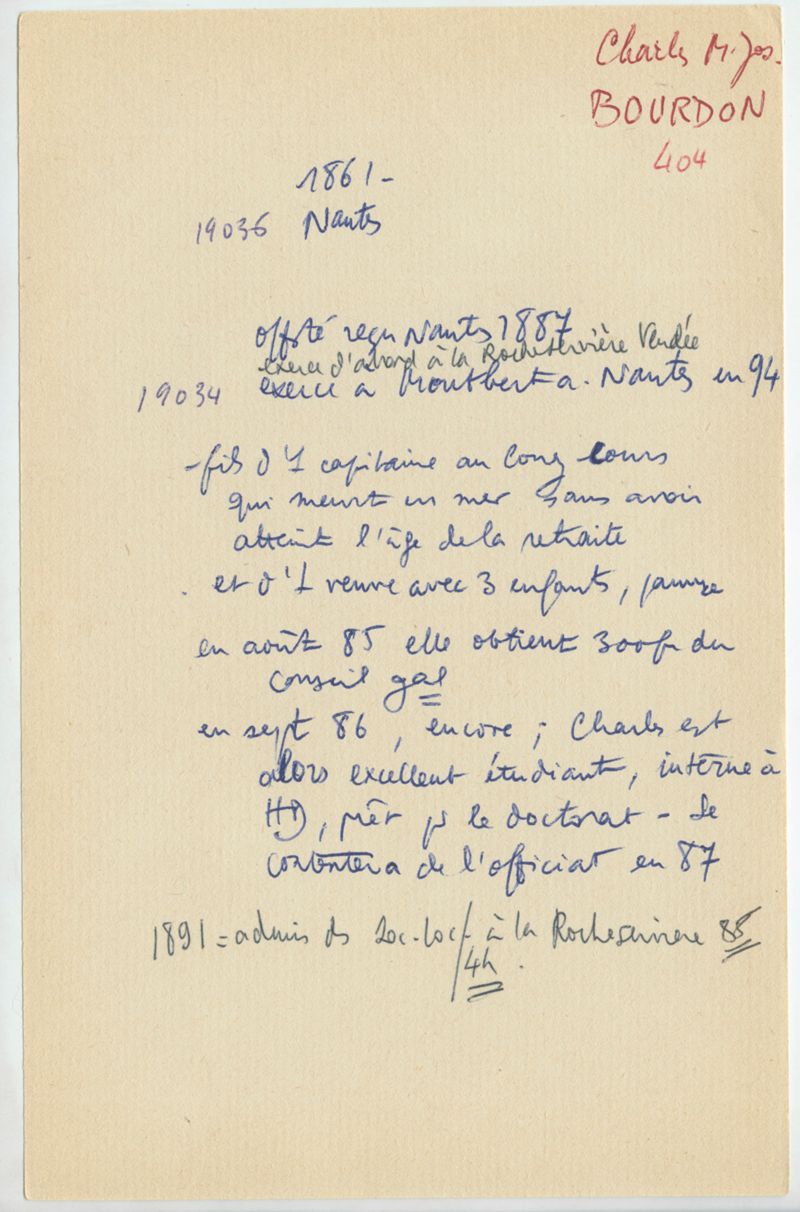 Charles M. Jos.
BOURDON
404
1861 -
19036 Nantes
offté reçu Nantes 1887
exerce d'abord à la Rocheservière Vendée
19034 exerce à Montbert a. Nantes en 94
- fils d'1 capitaine au long cours
qui meurt en mer sans avoir
atteint l'âge de la retraite
. et d'1 veuve avec 3 enfants, pauvre
en août 85 elle obtient 300fr du
Conseil gal
en sept 86, encore ; Charles est
alors excellent étudiant, interne à
HD, prêt pr le doctorat - Se
contentera de l'officiat en 87
1891 = admis ds Soc. loc / à la Rocheservière 85
44.